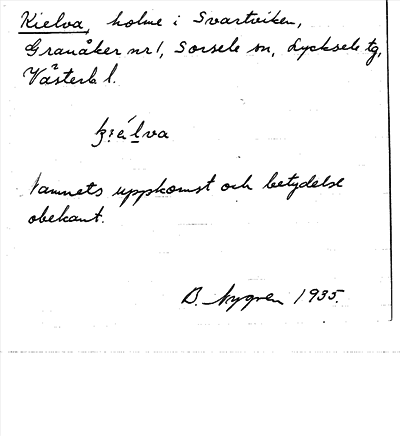 Kielva, holme i Svartviken,
Granåker nr 1, Sorsele sn, Lycksele tg,
Västerb l.
Namnets uppkomst och betydelse
obekant.
B. Nygren 1935.